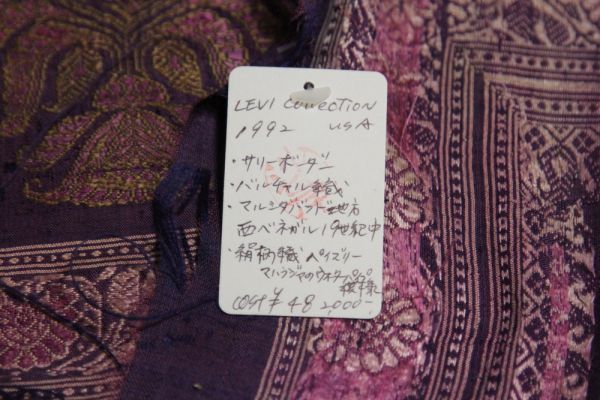 LEVI Collection
1992 USA
・サリーボーダー
・バルチャル織
・マルシダバッド地方
西ベンガル19世紀中
・絹柄織 ペイズリー
マハラジャのウオーターパイプ
模様
COST ¥482,000-